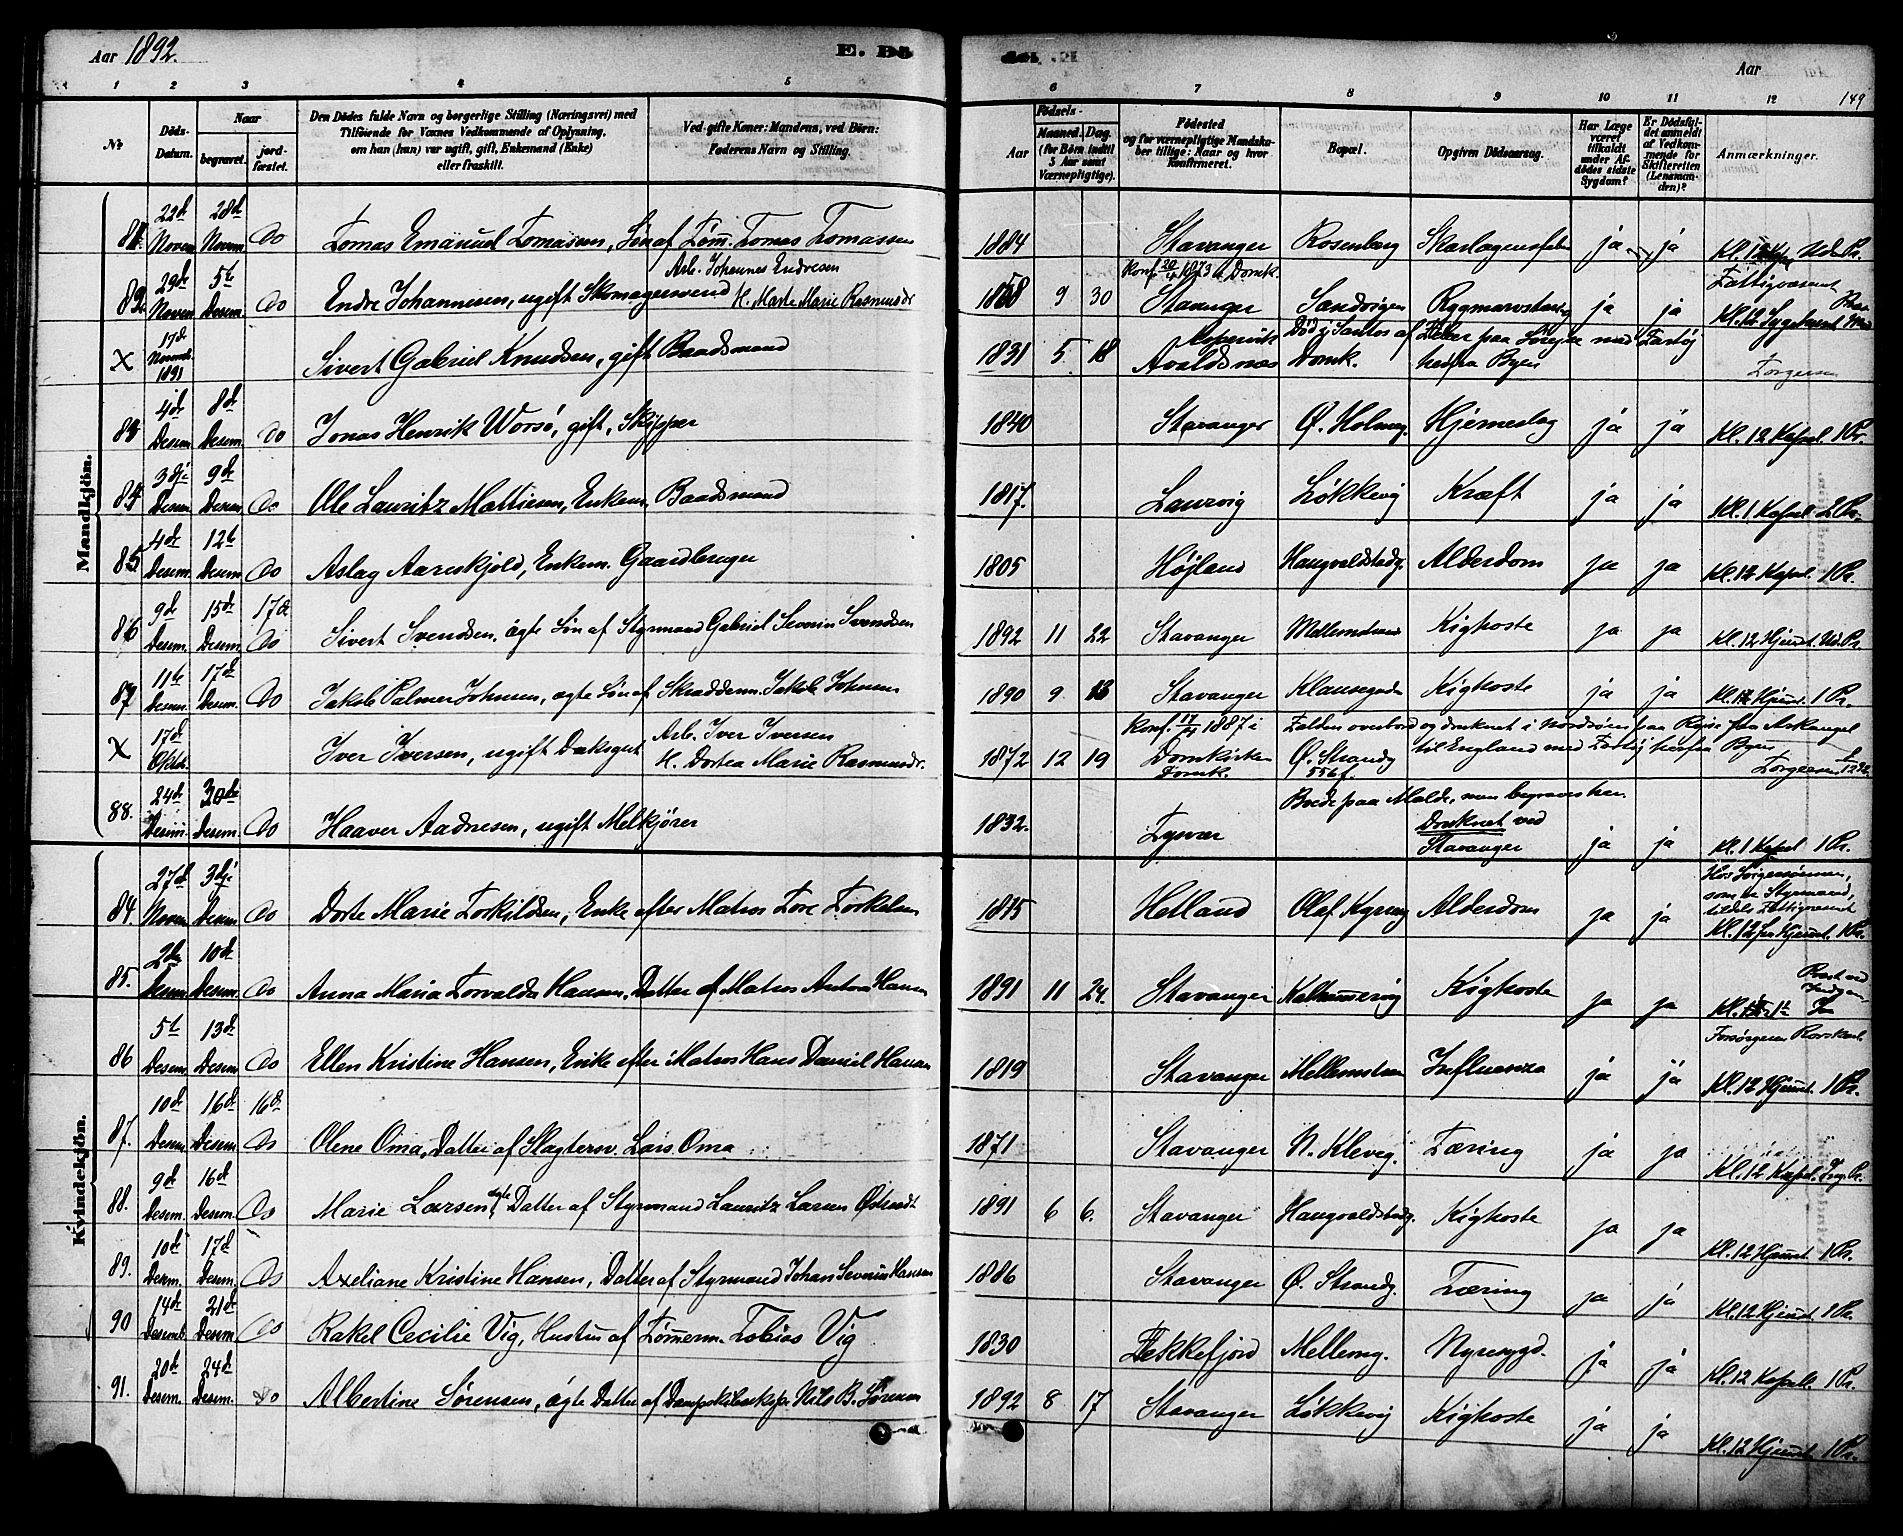 Aar 1892.
E. Dö
Aar
149
1 2 3 4 5 6 7 8 9 10 11 12
No
Döds-Datum.
Naar
begravet.
jordfæstet.
Den Dödes fulde Navn og borgerlige Stilling (Næringsvei) med
Tilföiende for Voxnes Vedkommende af Oplysning,
om han (hun) var ugift, gift, Enkemand (Enke)
eller fraskilt.
Ved gifte Koner: Mandens, ved Börn:
Faderens Navn og Stilling.
Aar
Födsels-
Maaned. Dag.
(for Börn indtil
5 Aar samt
Værnepligtige).
Födested
og for værnepligtige Mandska-
ber tillige: Naar og hvor
konfirmeret.
Bopæl.
Opgiven Dödsaarsag.
Har Læge
været
tilkaldt
under Af-
dödes sidste
Sygdom?
Er Dödsfal-
det anmeldt
af Vedkom-
mende for
Skifteretten
(Lensman-
den)?
Anmærkninger.
Mandkjön.
81. 22d Novem 28d Novem Do Tomas Emanuel Tomassen, Søn af Tøm. Tomas Tomassen 1884 Stavanger Rosenberg Skarlagensfeber ja ja Kl. 12
82. 29d Novem 5te Desem. Do Endre Johannesen, ugift Skomagersvend Arb. Johannes Endresen H. Marte Marie Rasmusdr 1858 9 30 Konf. 20/4 1873 i Domk. Stavanger Sandvigen Rygmarvstæring ja ja Fattigvæsenet Kl. 12 Sygehuset
X 17d Novemb. 1891 Sivert Gabriel Knudsen, gift Baadsmand 1831 5 18 Avaldsnes Domk. Død i Santos af Feber paa Rejse med Fartøj herfra Byen Torgersen
83 4d Desem 8d Desem. Do Jonas Henrik Worsö, gift, Skipper 1840 Stavanger Ø. Holmeg. Hjerneslag ja ja Kl. 12 Kapel. 1 Pr.
84 3dje Desem. 9d Desem. Do Ole Lauritz Mattiesen, Enkem. Baadsmand 1817. Laurvig Løkkevig Kræft ja ja Kl. 1 Kapel 2 Pr.
85 4d Desem. 12te Desem Do Aslag Aareskjold, Enkem. Gaardbruger 1805 Højland Haugvaldstadg. Alderdom ja ja Kl. 12 Kapel. 1 Pr.
86 9d Desem. 15d Desem. 17d Do Sivert Svendsen, ægte Søn af Styrmand Gabriel Severin Svendsen 1892 11 22 Stavanger Kighoste ja ja Kl. 12 Hjemt. Ud. Pr.
87 11te Desem. 17d Desem. Do Jakob Palmer Johnsen, ægte Søn af Skrædderm. Jakob Johnsen 1890 9 13 Stavanger Klausegade Kighoste ja ja Kl. 12 Hjemt. 1 Pr.
X 17d Oktb. Iver Iversen, ugift Daksgut Arb. Iver Iversen H. Dortea Marie Rasmusdr. 1872 12 19 Konf. 1887 i Domkirken Domk. Ø. Strandg 556 f. Falden overbord og druknet i Nordsøen paa Rejse fra Arkangel til England med Fartøj herfra Byen Torgersen
88. 24d Desem. 30de Desem. Do Haaver Aadnesen, ugift Melkjører 1832. Tysvær Boede paa Molde, men begraves her. Druknet ved Stavanger ja ja Kl. 1 Kapel 1 Pr.
Kvindekjön.
84. 27d Novem 3dje Desem Do Dorte Marie Torkildsen, Enke efter Matros Tore Torkelsen Hetland Olaf Kyrreg Alderdom ja ja Hos Svigersønnen, som er Styrmand, tildels Fattigvæsenet Kl. 12 Hjemt. 1 Pr.
85. 2den Desem 10d Desem. Do Anna Maria Torvalda Hansen, Datter af Matros Anton Hansen 1891 11 24. Stavanger Kalhammervig Kighoste ja ja
86 5te Desem. 13d Desem. Do Ellen Kristine Hansen, Enke efter Matros Hans Daniel Hansen 1819 Stavanger Mellemstraen Influenza ja ja Kl. 12 Hjemt. 1 Pr.
87. 10d Desem 16d Desem. 16d Do Olene Oma, Datter af Slagtersv. Lars Oma 1871 Stavanger N. Klevig. Tæring ja ja Kl. 12 Kapel.
88. 9d Desem. 16d Desem. Do Marie Larsen, ægte Datter af Styrmand Lauritz Larsen Østraadt 1891 6 6. Stavanger Haugvaldstadg. Kighoste ja ja Kl. 12 Hjemt. 1 Pr.
89. 10d Desem. 17d Desem. Do Axeliane Kristine Hansen, Datter af Styrmand Johan Severin Hansen 1886 Stavanger Ø. Strandg. Tæring ja ja Kl. 12 Hjemt. 1 Pr.
90 14d Desemb. 21d Desem. Do Rakel Cecilie Vig, Hustru af Tømmerm. Tobias Vig 1830 Flekkefjord Mellemg. Nyresygd. ja ja Kl. 12 Kapel. 1 Pr.
91. 20d Desem. 24d Desem. Do Albertine Sørensen, ægte Datter af Dampskibsekspr. Nils B. Sørensen 1892 8 17 Stavanger Løkkevig Kighoste ja ja Kl. 12 Hjemt. 1 Pr.